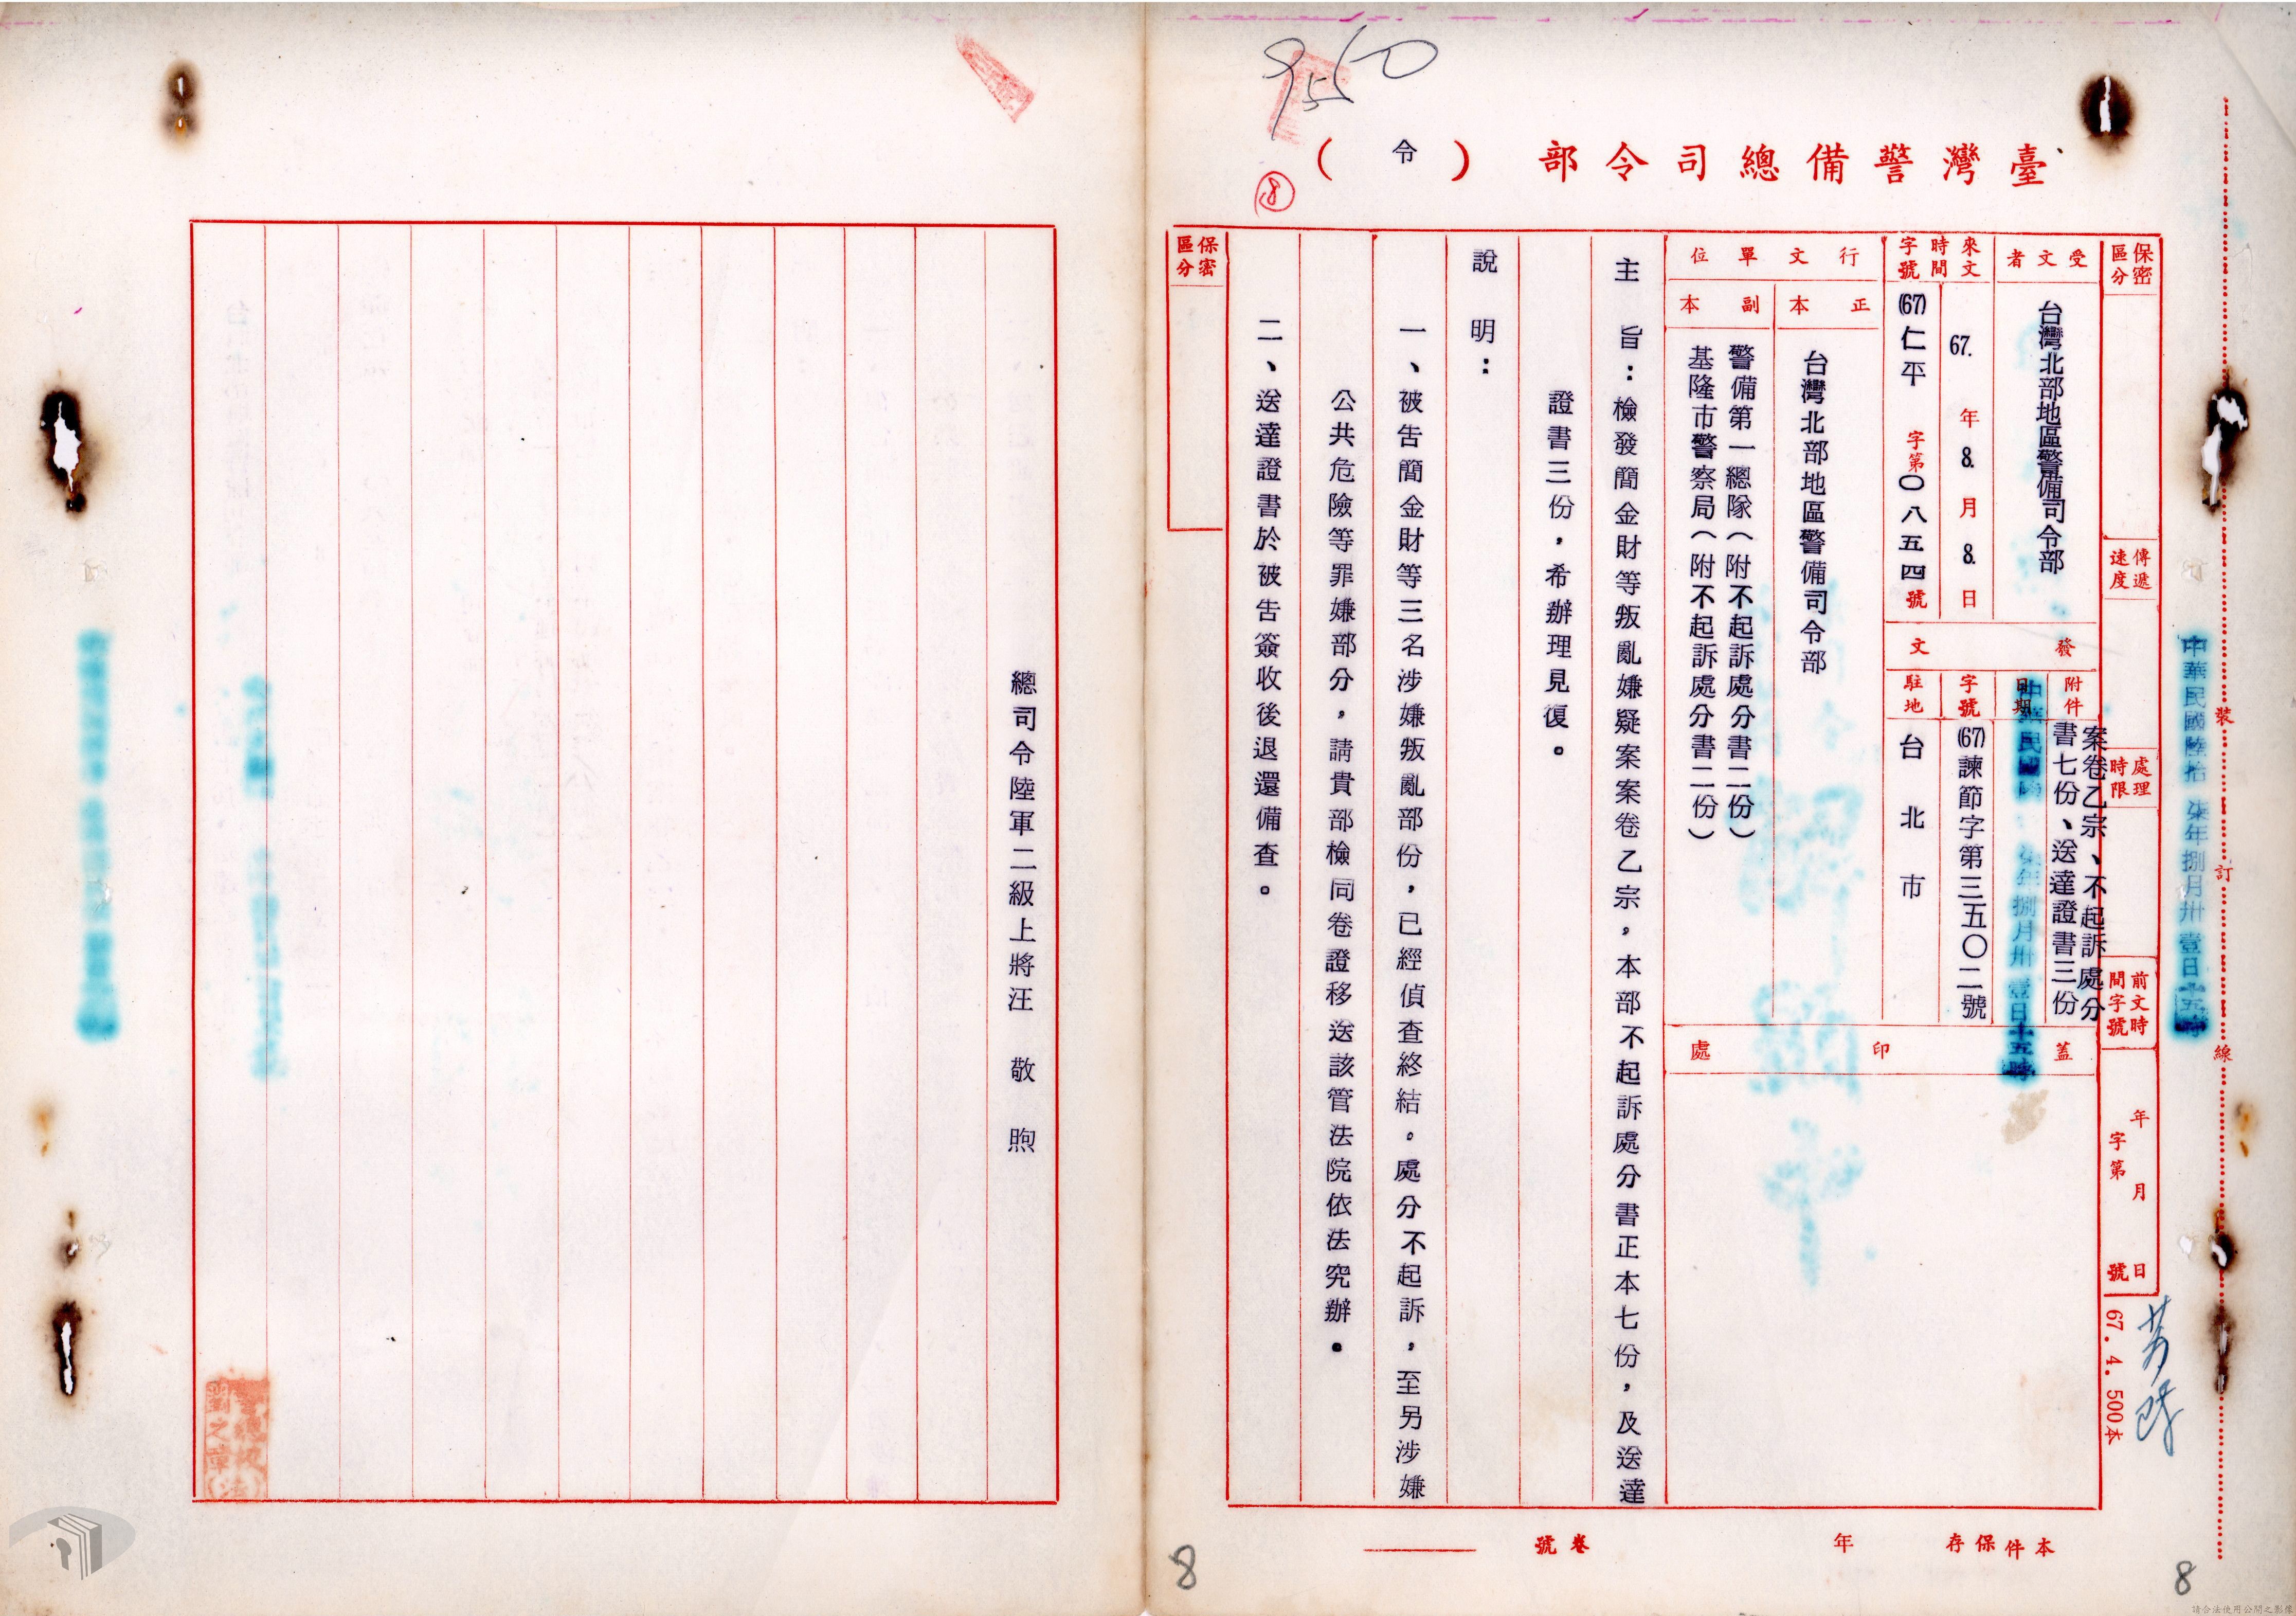 9550
臺灣警備總司令部（令）
⑧
保密區分
傳遞速度
處理時限
前文時間字號
年 月 日
字第 號
67.4.500本
受文者
台灣北部地區警備司令部
來文時間字號
67.年8.月8.日
(67)仁平字第〇八五四號
發文
附件
案卷乙宗、不起訴處分
書七份、送達證書三份
日期
中華民國陸拾柒年捌月卅壹日十五時
字號
(67)諫節字第三五〇二號
駐地
台北市
行文單位
正本
台灣北部地區警備司令部
副本
警備第一總隊（附不起訴處分書二份）
基隆市警察局（附不起訴處分書二份）
蓋印處
主旨：檢發簡金財等叛亂嫌疑案案卷乙宗，本部不起訴處分書正本七份，及送達
證書三份，希辦理見復。
說明：
一、被告簡金財等三名涉嫌叛亂部份，已經偵查終結。處分不起訴，至另涉嫌
公共危險等罪嫌部分，請貴部檢同卷證移送該管法院依法究辦。
二、送達證書於被告簽收後退還備查。
保密區分
中華民國陸拾柒年捌月卅壹日十五時
裝訂線
本件保存 年
卷號
8
8
總司令陸軍二級上將汪敬煦
請合法使用公開之影像